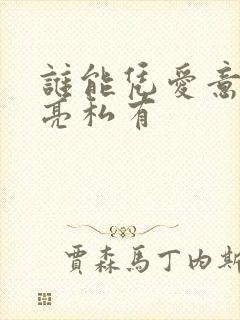 誰能凭愛意
亮私有
賈森馬丁内斯